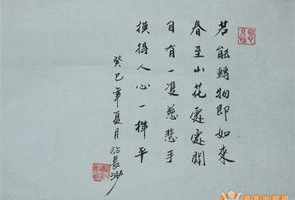 若能轉物即如來
春至山花處處開
自有一雙慈悲手
摸得人心一樣平
癸巳年夏月